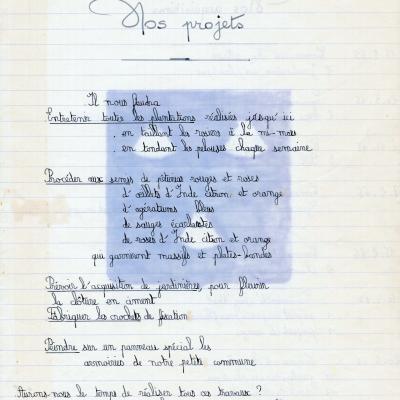 Nos projets
Il nous faudra
Entretenir toutes les plantations réalisées jusqu'ici
. en taillant les rosiers à la mi-mars
. en tondant les pelouses chaque semaine
Procéder aux semis de pétunias rouges et roses
d'œillets d'Inde citron et orange
d'agératums bleus
de sauges écarlates
de roses d'Inde citron et orange
qui garniront massifs et plates-bandes
Prévoir l'acquisition de jardinières, pour fleurir
la clôture en ciment
Fabriquer les crochets de fixation
Peindre sur un panneau spécial les
armoiries de notre petite commune
Aurons-nous le temps de réaliser tous ces travaux ?